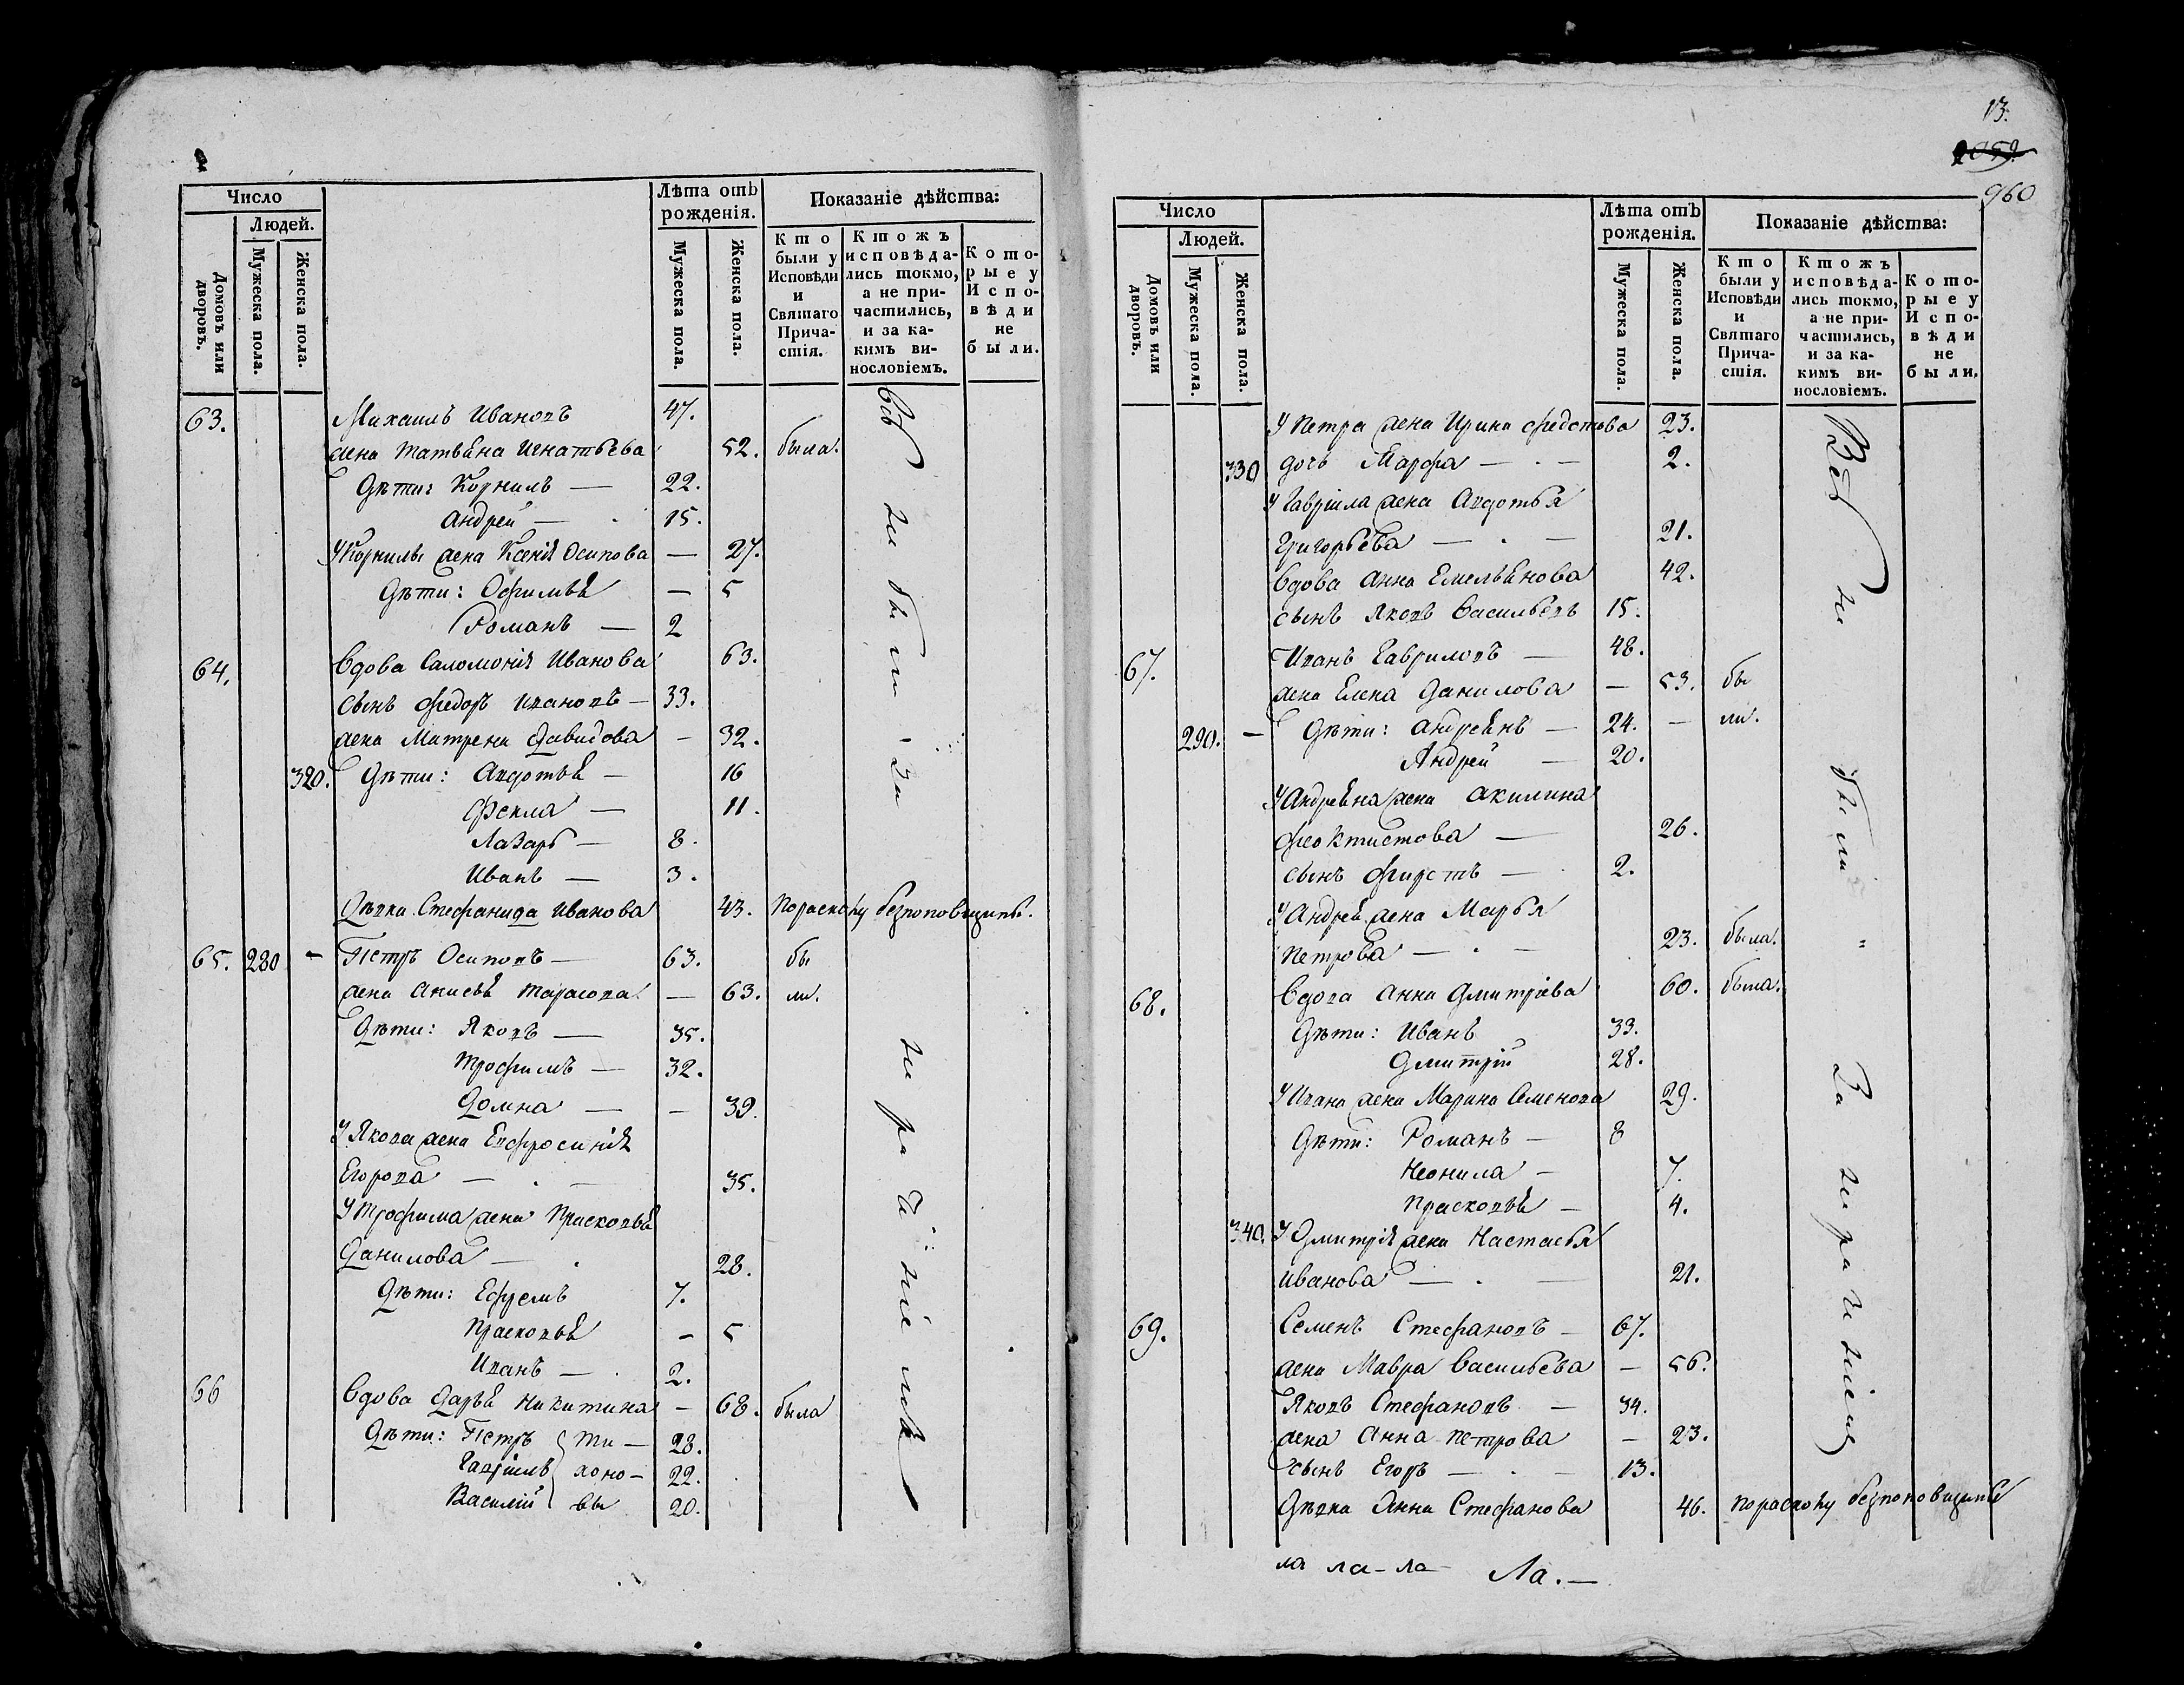 Число
Людей.
Домовъ или дворовъ.
Мужеска пола.
Женска пола.
Лѣта отъ рожденія.
Мужеска пола.
Женска пола.
Показаніе дѣйства:
Кто были у Исповѣди и Святаго Причастія.
Ктожъ исповѣдались токмо, а не причастились, и за какимъ винословіемъ.
Которые у Исповѣди не были.
63. Михаилъ Ивановъ 47.
жена Татьяна Игнатьева 52. была.
Дѣти: Корнилъ — 22.
Андрей — 15.
У Корнилы жена Ксенія Осипова — 27.
Дѣти: Офимья — 5
Романъ — 2
64. Вдова Саломонія Иванова 63.
сынъ Федоръ Ивановъ — 33.
жена Матрена Давидова — 32.
320. Дѣти: Авдотья — 16
Фекла — 11.
Лазарь — 8.
Иванъ — 3.
Дѣвка Стефанида Иванова 43. по расколу безпоповщины.
65. 280 — Петръ Осиповъ — 63. бы
жена Анисья Тарасова — 63. ли.
Дѣти: Яковъ — 35.
Трофимъ — 32.
Домна — — 39.
У Якова жена Евфросинія
Егорова — 35.
У Трофима жена Прасковья
Данилова — 28.
Дѣти: Ефремъ 7.
Прасковья — 5
Иванъ — 2.
66 Вдова Дарья Никитина — 68. была
Дѣти: Петръ Ти — 28.
Гавріилъ хоно — 22.
Василій вы 20.
не были за нераченіемъ
13.
960
Число
Людей.
Домовъ или дворовъ.
Мужеска пола.
Женска пола.
Лѣта отъ рожденія.
Мужеска пола.
Женска пола.
Показаніе дѣйства:
Кто были у Исповѣди и Святаго Причастія.
Ктожъ исповѣдались токмо, а не причастились, и за какимъ винословіемъ.
Которые у Исповѣди не были.
У Петра жена Ирина Федотова 23.
330 дочь Марфа — 2.
У Гавріила жена Авдотья
Григорьева — 21.
Вдова Анна Емельянова 42.
сынъ Яковъ Васильевъ 15.
67. Иванъ Гавриловъ — 48.
жена Елена Данилова — 53. бы
290. — Дѣти: Андреянъ — 24. — ли.
Андрей — 20.
У Андреяна жена Акилина
Феоктистова — 26.
сынъ Фирстъ — 2.
У Андрея жена Марья
Петрова — 23. была.
68. Вдова Анна Дмитріева 60. была.
Дѣти: Иванъ 33.
Дмитрій 28.
У Ивана жена Марина Семенова 29.
Дѣти: Романъ — 8
Неонила — 7.
Прасковья — 4.
340. У Дмитрія жена Настасья
Иванова — 21.
69. Семенъ Стефановъ — 67.
жена Мавра Васильева — 56.
Яковъ Стефановъ — 34.
жена Анна Петрова — 23.
сынъ Егоръ — 13.
Дѣвка Анна Стефанова 46. по расколу безпоповщины
Всѣ не были за нераченіемъ
ла ла-ла Ла.—